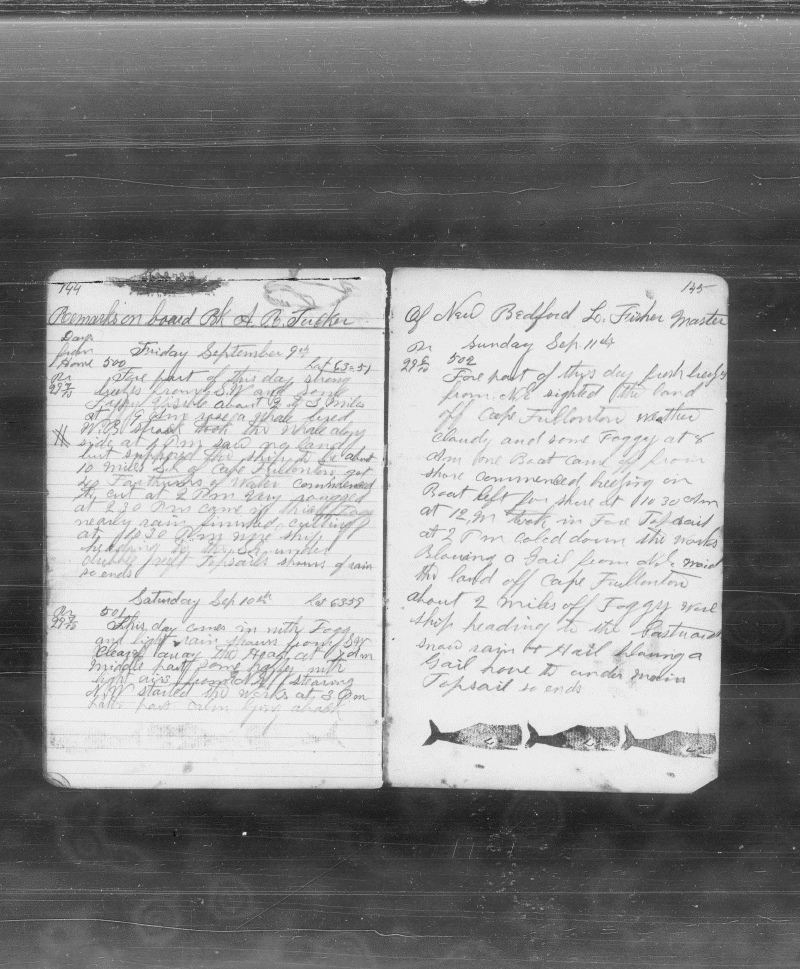 144
Remarks on board Bk A. R. Tucker
Days
from
Home 500 Friday September 9th Lat 63=51
Br Fore part of this day strong
29 5/10 from S.W and some
Foggy about 2 or 3 miles
at 9 A.m rose a whale lored
W.B. struck took the whale along
side at 1 P.m saw no land
but supposed the ship to be about
10 miles of Cape Fullerton got
of water commenced
to cut at 2 P.m very rougged
at 2 30 P.m came on thick Fogg
nearly rain finished cutting
at 10 30 P.m now ship
heading to the under
double reef Topsails showers of rain
so ends
Saturday Sep 10th Lat 6359
Br 501
29 This day comes in with Fogg
and light rain from S.W
Cleard away the Head at 7 A.m
Middle part some foggy with
light airs from N.W stearing
N.W started the works at 3 P.m
latter part calm
145
Of New Bedford L. Fisher Master
Br Sunday Sep 11th
29 502
Fore part of thys day fresh
from N.E sighted the land
off Cape Fullonton weather
cloudy and some Foggy at 8
A.m one Boat came off from
shore commenced on
Boat left for shore at 10 30 A.m
at 12,M took in Fore Top sail
at 2 P.m coled down the works
Blowing a Gail from N.E
the land off Cape Fullonton
about 2 miles off Foggy
ship heading to the Eastward
snow rain & Hail blowing a
Gail hove to under main
Topsail so ends